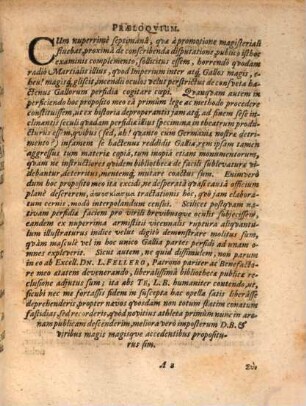 PRÆLOQVIUM.
CUm nuperrimè septimanâ, quæ à promotione magisteriali
fluebat, proxima de conscribenda disputatione, publico istiusce
examinis complemento, sollicitus essem, horrendo quodam
radio Martialis istius, quod Imperium inter atq; Gallos magis, e-
heu! magisq; gliscit, incendii oculos velut perstrictus de consveta ha-
ctenus Gallorum perfidia cogitare cœpi. Quanquam autem in
perficiendo hoc proposito meo eâ primùm lege ac methodo procedere
constituissem, ut ex historia deprepararantis jam atq; ad finem sese in-
clinantis seculi quædam perfidiarum specimina in theatrum produ-
cturus essem, quibus (sed, ah! quanto cum Germaniæ nostræ detri-
mento!) infamem se hactenus reddidit Gallia; rem ipsam tamen
aggressus tum materiæ copiâ, tum inopiâ etiam monumentorum,
quam ne instructiores quidem bibliothecæ de facili sublevaturæ vi-
debantur, deterritus, mentemq; mutare coactus sum. Enimverò
dum hoc proposito meo ita excidi, ne desperatâ quasi causâ officium
planè desererem,
ratum cernis, modò interpolandum censui. Scilicet postquam na-
tivam perfidiæ faciem pro virili brevibusque oculis subjecissem,
eandem ex nuperrima armistitii vicennalis ruptura aliquantu-
lum illustraturus indice velut digitô demonstrare molitus sum,
quàm masculè vel in hoc unico Gallia partes perfidi ad unam o-
mnes expleverit. Sicut autem, ne quid dissimulem, non parum
in eo ab Excell. Dn. L. FELLERO, Patrono pariter ac Benefacto-
re meo ætatem devenerando, liberalissimâ bibliothecæ publicæ re-
clusione adjutus sum; ita abs TE, L.B. humaniter contendo, ut,
sicubi nec ms fortassis fidem in suscepta hac opella satis liberasse
deprehenderis, propter nævos quosdam non totum statim conatum
fastidias, sed recorderis, quòd novitius athleta primùm nunc in are-
nam publicam descenderim, meliora verò imposterum D.B. &
viribus magis magisque accedentibus propositu-
rus sim.
A 2